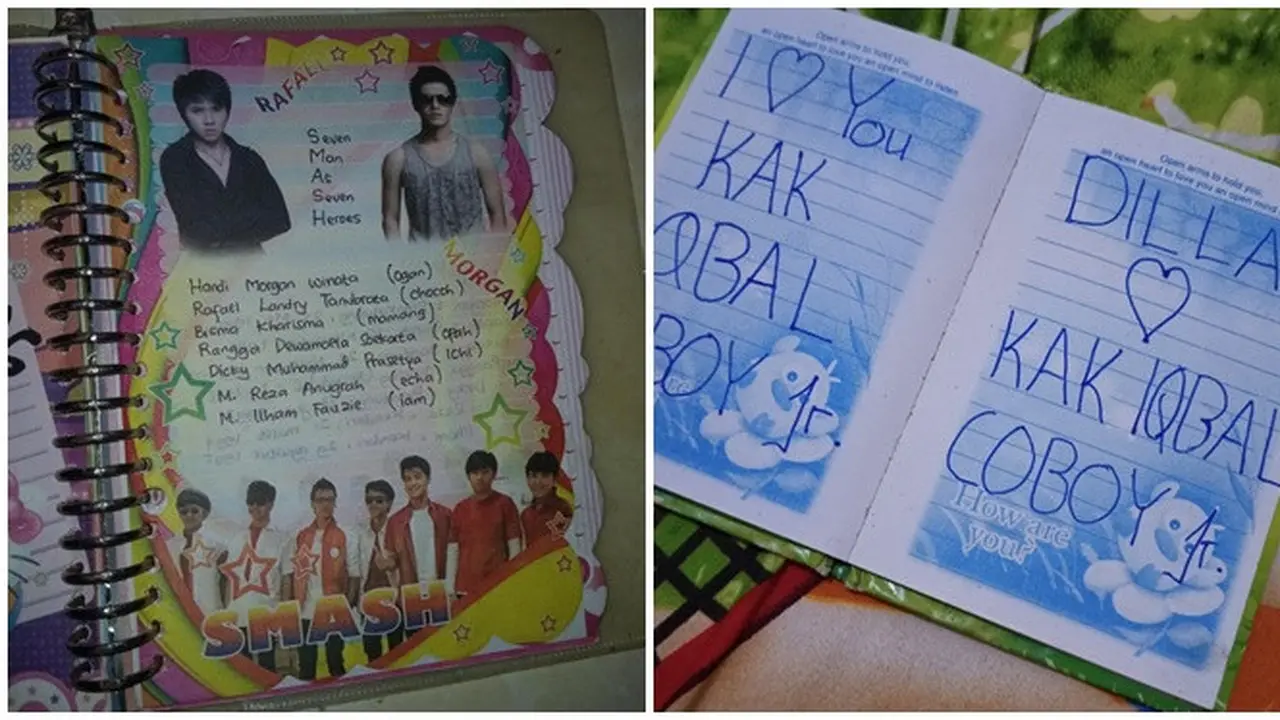 RAFAEL
Seven
Man
As
Seven
Heroes
MORGAN
Handi Morgan Winata (ogan)
Rafael Landry Tanubraea (chocoh)
Bisma Kharisma (mamang)
Rangga Dewamoela Soekarta (epah)
Dicky Muhammad Prasetya (Ichi)
M. Reza Anugrah (echa)
M. Ilham Fauzie (iam)
SMASH
Open arms to hold you.
an open heart to love you an open mind to listen
I ♡ You
KAK
IQBAL
COBOY Jr.
Open arms to hold you.
an open heart to love you an open mind
DILLA
♡
KAK IQBAL
COBOY Jr.
How are
you?